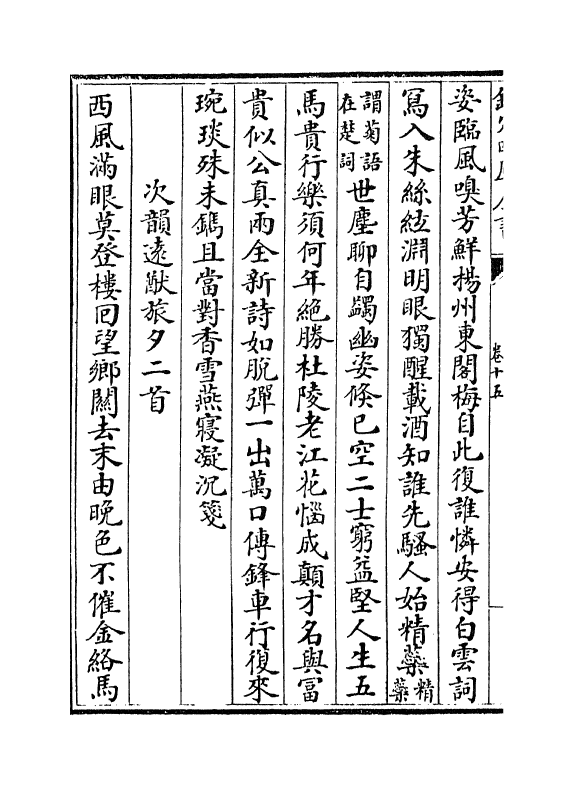 欽定四庫全書
卷十五
姿臨風嗅芳鮮楊州東閣梅自此復誰憐安得白雲詞
寫入朱絲絃淵明眼獨醒載酒知誰先騷人始精蘂精蘂
謂菊語在楚詞世塵聊自蠲幽姿倐已空二士窮益堅人生五
馬貴行樂須何年絶勝杜陵老江花惱成顛才名與富
貴似公真兩全新詩如脫彈一出萬口傳鋒車行復來
琬琰殊未鐫且當對香雪燕寢凝沉箋
次韻遠猷旅夕二首
西風滿眼莫登樓回望鄉關去末由晚色不催金絡馬